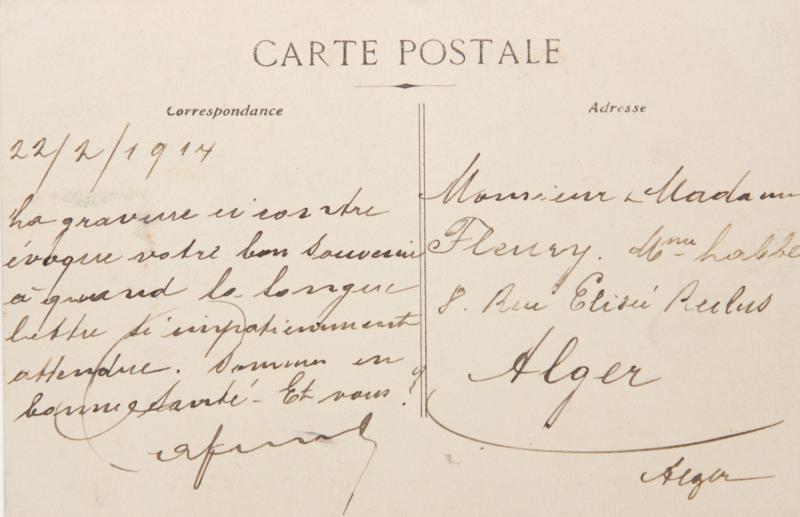 CARTE POSTALE
Correspondance
Adresse
22/2/1914
La gravure ci contre
évoque votre bon souvenir
à quand la longue
lettre si impatiemment
attendue. Sommes en
bonne Santé - Et vous?
Monsieur & Madame
Fleury. Mme Labbé
8. Rue Elisée Reclus
Alger
Alger